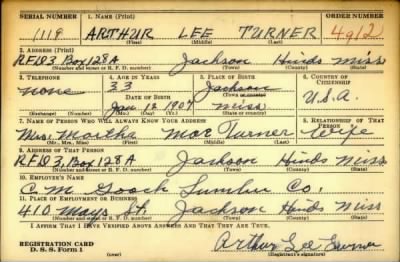 SERIAL NUMBER 1. NAME (Print) ORDER NUMBER
1119 ARTHUR LEE TURNER 4912
(First) (Middle) (Last)
2. ADDRESS (Print)
RFD3 Box 128A Jackson Hinds Miss
(Number and street or R. F. D. number) (Town) (County) (State)
3. TELEPHONE 4. AGE IN YEARS 5. PLACE OF BIRTH 6. COUNTRY OF CITIZENSHIP
none 33 Jackson
DATE OF BIRTH (Town or county)
Jan 12 1907 Miss U.S.A.
(Exchange) (Number) (Mo.) (Day) (Yr.) (State or country)
7. NAME OF PERSON WHO WILL ALWAYS KNOW YOUR ADDRESS 8. RELATIONSHIP OF THAT PERSON
Mrs. Martha Mae Turner Wife
(Mr., Mrs., Miss) (First) (Middle) (Last)
9. ADDRESS OF THAT PERSON
RFD 3, Box 128A Jackson Hinds Miss
(Number and street or R. F. D. number) (Town) (County) (State)
10. EMPLOYER'S NAME
C. M. Gooch Lumber Co.
11. PLACE OF EMPLOYMENT OR BUSINESS
410 Mays St. Jackson Hinds Miss
(Number and street or R. F. D. number) (Town) (County) (State)
I AFFIRM THAT I HAVE VERIFIED ABOVE ANSWERS AND THAT THEY ARE TRUE.
REGISTRATION CARD Arthur Lee Turner
D. S. S. Form 1 (over) (Registrant's signature)